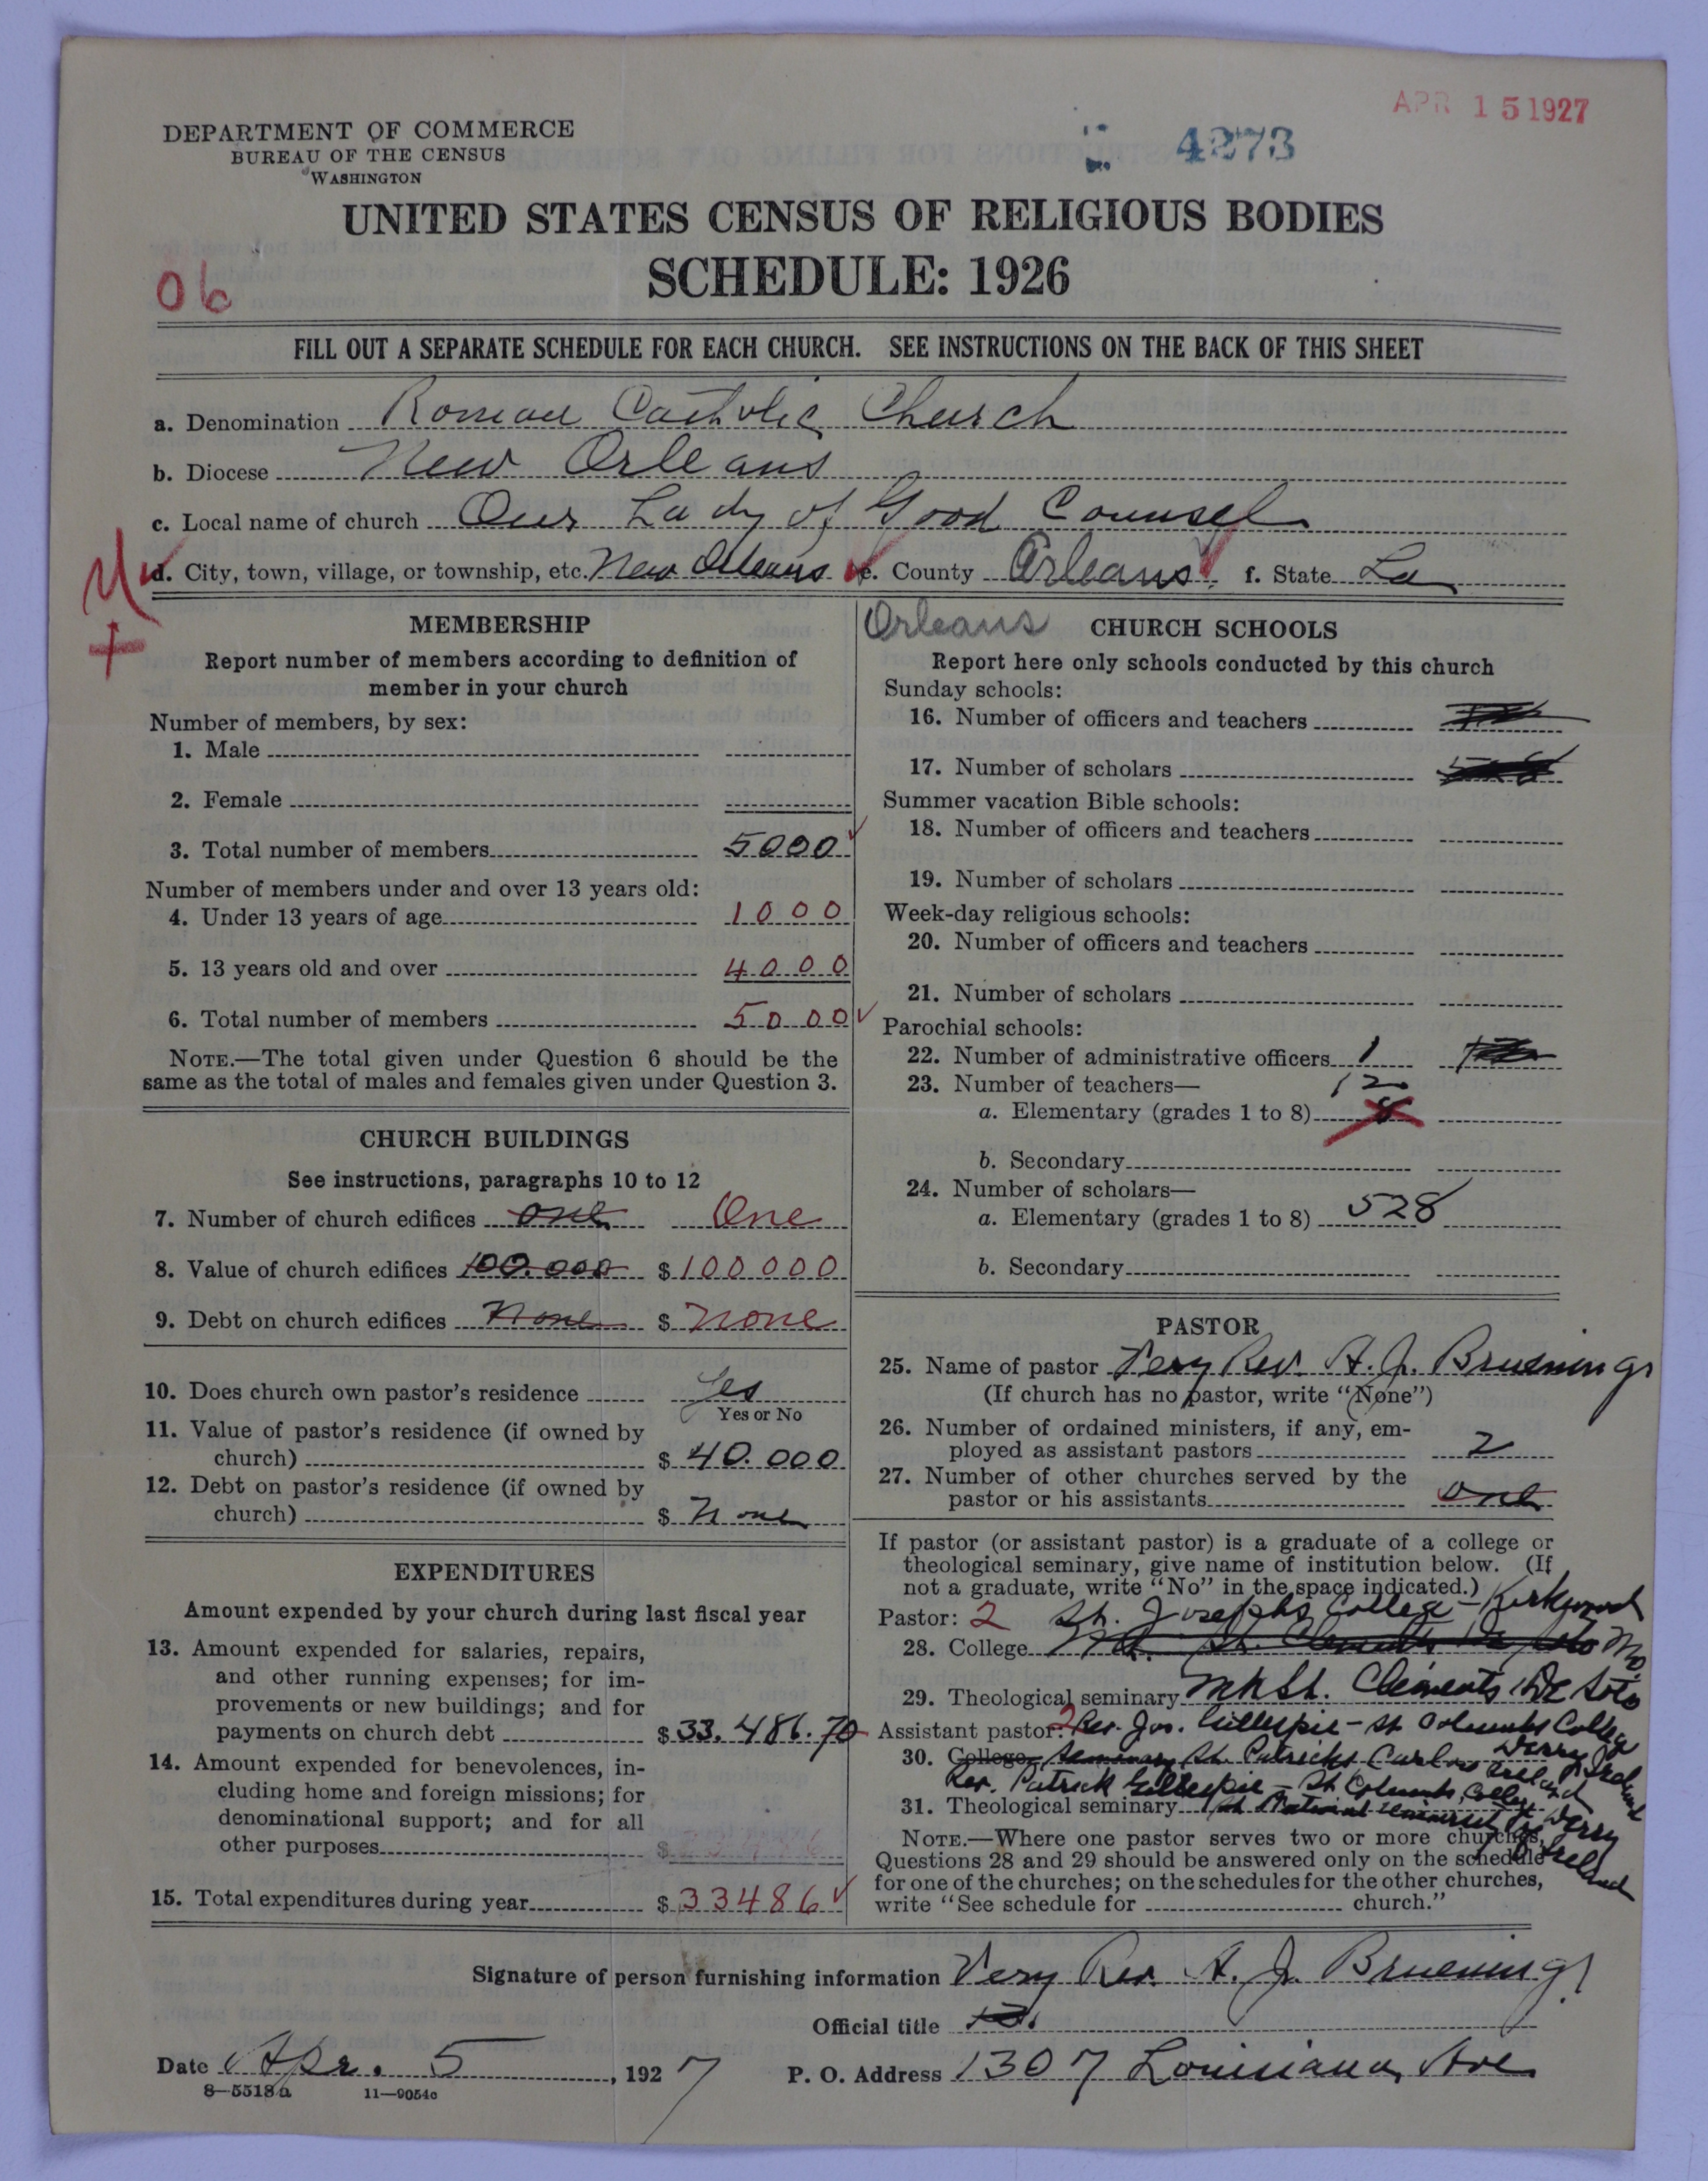 APR 15 1927
4273
DEPARTMENT OF COMMERCE
BUREAU OF THE CENSUS
WASHINGTON
UNITED STATES CENSUS OF RELIGIOUS BODIES
SCHEDULE: 1926
06
FILL OUT A SEPARATE SCHEDULE FOR EACH CHURCH. SEE INSTRUCTIONS ON THE BACK OF THIS SHEET
a. Denomination Roman Catholic Church
b. Diocese New Orleans
c. Local name of church Our Lady of Good Counsel
d. City, town, village, or township, etc. New Orleans e. County Orleans f. State La
MEMBERSHIP
Report number of members according to definition of
member in your church
Number of members, by sex:
1. Male
2. Female
3. Total number of members 5000
Number of members under and over 13 years old:
4. Under 13 years of age 1000
5. 13 years old and over 4000
6. Total number of members 5000
NOTE.—The total given under Question 6 should be the
same as the total of males and females given under Question 3.
CHURCH BUILDINGS
See instructions, paragraphs 10 to 12
7. Number of church edifices one One
8. Value of church edifices 100.000 $ 100000
9. Debt on church edifices None $ none
10. Does church own pastor's residence Yes
Yes or No
11. Value of pastor's residence (if owned by
church) $ 40.000
12. Debt on pastor's residence (if owned by
church) $ None
EXPENDITURES
Amount expended by your church during last fiscal year
13. Amount expended for salaries, repairs,
and other running expenses; for im-
provements or new buildings; and for
payments on church debt $ 33.486.70
14. Amount expended for benevolences, in-
cluding home and foreign missions; for
denominational support; and for all
other purposes $
15. Total expenditures during year $ 33486
Orleans CHURCH SCHOOLS
Report here only schools conducted by this church
Sunday schools:
16. Number of officers and teachers
17. Number of scholars
Summer vacation Bible schools:
18. Number of officers and teachers
19. Number of scholars
Week-day religious schools:
20. Number of officers and teachers
21. Number of scholars
Parochial schools:
22. Number of administrative officers 1
23. Number of teachers— 12
a. Elementary (grades 1 to 8) 8
b. Secondary
24. Number of scholars—
a. Elementary (grades 1 to 8) 528
b. Secondary
PASTOR
25. Name of pastor Very Rev. A. J. Bruening
(If church has no pastor, write "None")
26. Number of ordained ministers, if any, em-
ployed as assistant pastors 2
27. Number of other churches served by the
pastor or his assistants one
If pastor (or assistant pastor) is a graduate of a college or
theological seminary, give name of institution below. (If
not a graduate, write "No" in the space indicated.)
Pastor: 2 St. Josephs College - Kirkwood
28. College St. Clements De Soto Mo.
29. Theological seminary St. Clements De Soto
Assistant pastor: 2 Rev. Jos. Gillespie - St Columbs College
30. College Seminary St. Patricks Carlow Ireland Derry Ireland
Rev. Patrick Gillespie - St Columbs College
31. Theological seminary Derry Ireland
NOTE.—Where one pastor serves two or more churches,
Questions 28 and 29 should be answered only on the schedule
for one of the churches; on the schedules for the other churches,
write "See schedule for church."
Signature of person furnishing information Very Rev. A. J. Bruening
Official title
Date Apr. 5, 1927 P. O. Address 1307 Louisiana Ave
8—5518a 11—9054c